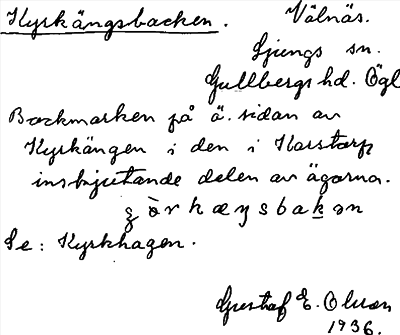 Kyrkängsbacken. Välnäs.
Ljungs sn.
Gullbergs hd. Ögl
Backmarken på ö. sidan av
Kyrkängen i den i Karstorp
inskjutande delen av ägorna.
ɕòrkæŋsbakən
Se: Kyrkhagen.
Gustaf E. Olson
1936.